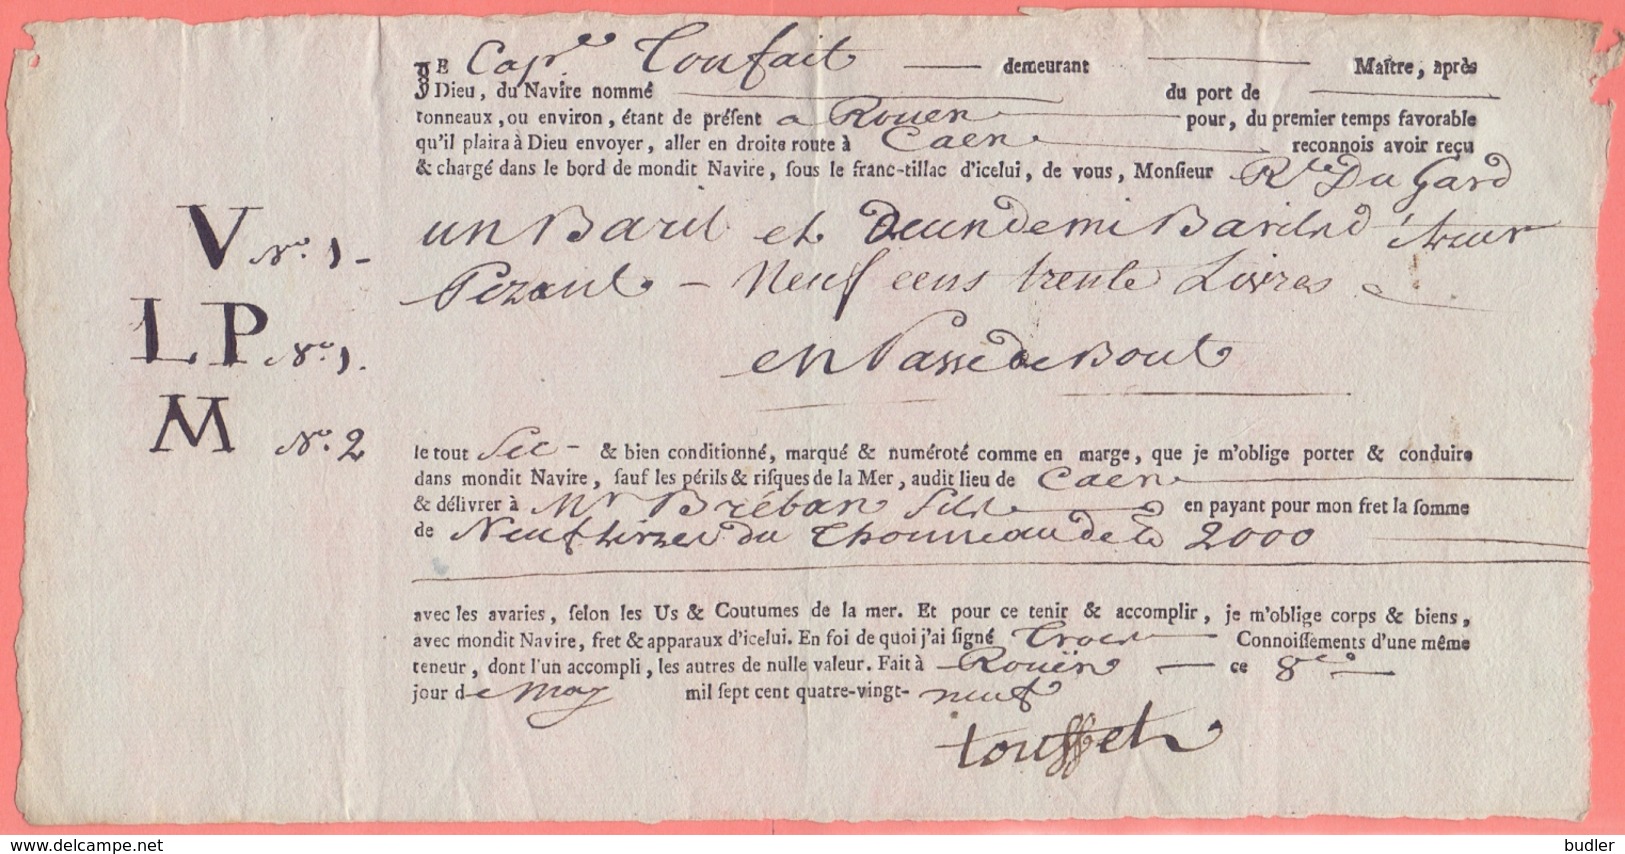 JE Cap.ne Toufait demeurant Maître, après
Dieu, du Navire nommé du port de
tonneaux, ou environ, étant de préſent a Rouen pour, du premier temps favorable
qu'il plaira à Dieu envoyer, aller en droite route à Caen reconnois avoir reçu
& chargé dans le bord de mondit Navire, ſous le franc-tillac d'icelui, de vous, Monſieur R.te Du Gard
V N.o 1 -
un Baril et Deun demi Baril
Pezant - Neuf cens trente Livres
L P N.o 1.
en Passe de Bout
M N.o 2
le tout Sec - & bien conditionné, marqué & numéroté comme en marge, que je m'oblige porter & conduire
dans mondit Navire, ſauf les périls & riſques de la Mer, audit lieu de Caen
& délivrer à Mr Bréban fils en payant pour mon fret la ſomme
de Neuf Livres du Thonneau de 2000
avec les avaries, ſelon les Us & Coutumes de la mer. Et pour ce tenir & accomplir, je m'oblige corps & biens,
avec mondit Navire, fret & apparaux d'icelui. En foi de quoi j'ai ſigné Trois Connoiſſements d'une même
teneur, dont l'un accompli, les autres de nulle valeur. Fait à Rouën ce 8
jour de may mil ſept cent quatre-vingt- neuf
touffet
delcampe.net
budler